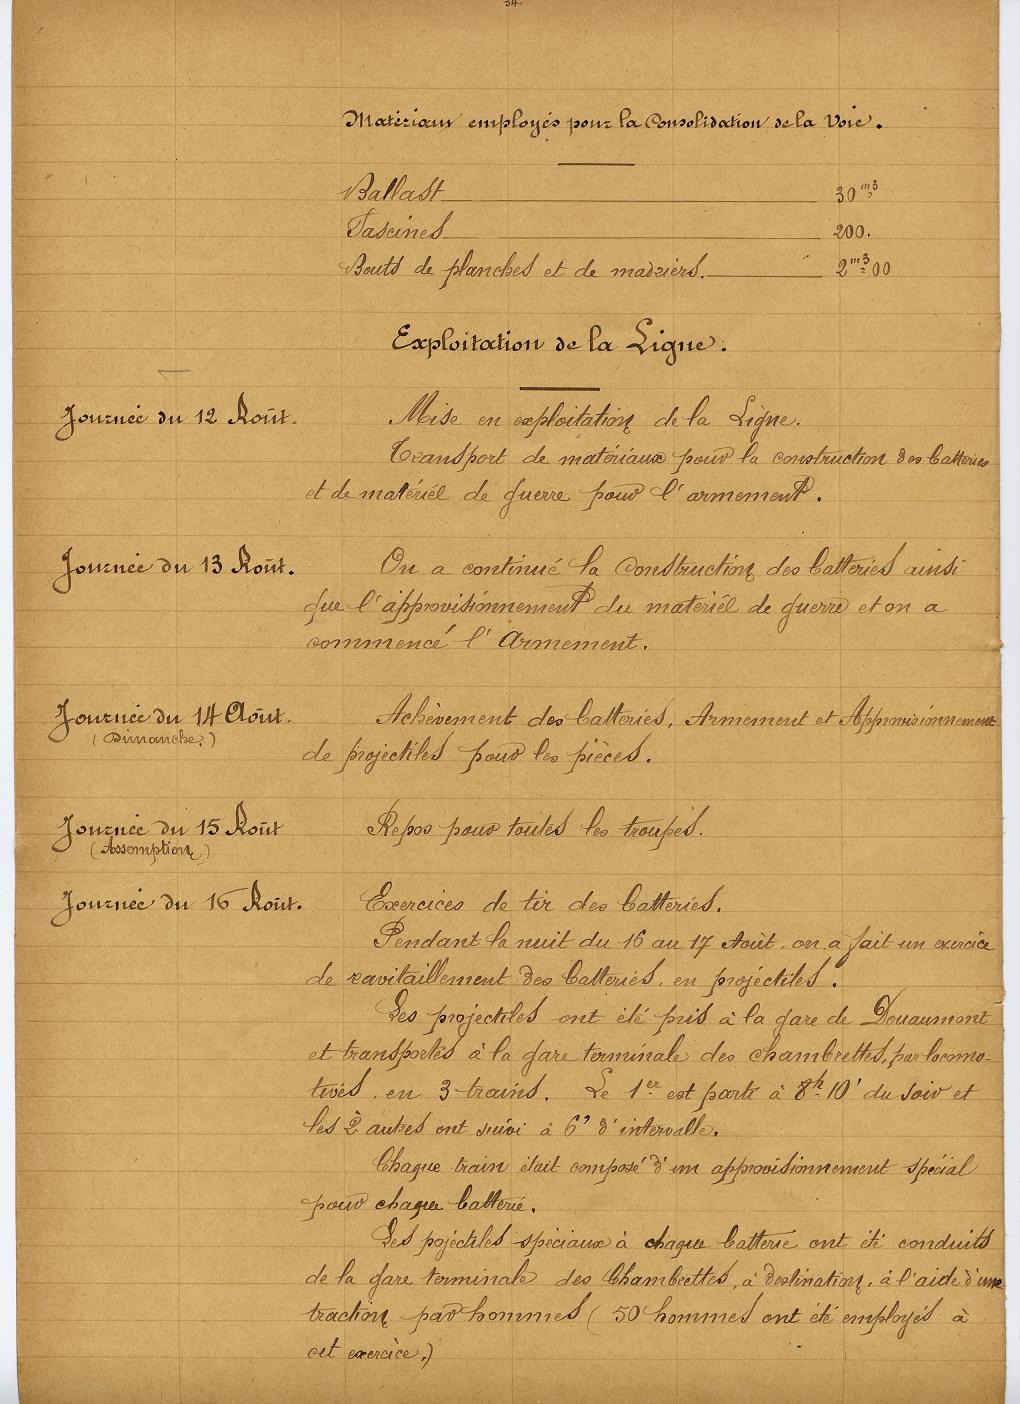 34.
Matériaux employés pour la Consolidation de la Voie.
Ballast 30 m3
Fascines 200.
Bouts de planches et de madriers. 2 m3 00
Exploitation de la Ligne.
Journée du 12 Août. Mise en exploitation de la Ligne.
Transport de matériaux pour la construction des batteries
et de matériel de guerre pour l'armement.
Journée du 13 Août. On a continué la Construction des batteries ainsi
que l'approvisionnement du matériel de guerre et on a
commencé l'Armement.
Journée du 14 Août. Achèvement des batteries, Armement et Approvisionnement
(Dimanche.)
de projectiles pour les pièces.
Journée du 15 Août Repos pour toutes les troupes.
(Assomption)
Journée du 16 Août. Exercices de tir des batteries.
Pendant la nuit du 16 au 17 Août, on a fait un exercice
de ravitaillement des batteries, en projéctiles.
Les projéctiles ont été pris à la gare de Douaumont
et transportés à la gare terminale des chambrettes, par locomo-
tives, en 3 trains. Le 1er est parti à 8h 10' du soir et
les 2 autres ont suivi à 6' d'intervalle.
Chaque train était composé d'un approvisionnement spécial
pour chaque batterie.
Les pojéctiles spéciaux à chaque batterie ont été conduits
de la gare terminale des Chambrettes, à destination, à l'aide d'une
traction par hommes (50 hommes ont été employés à
cet exercice.)